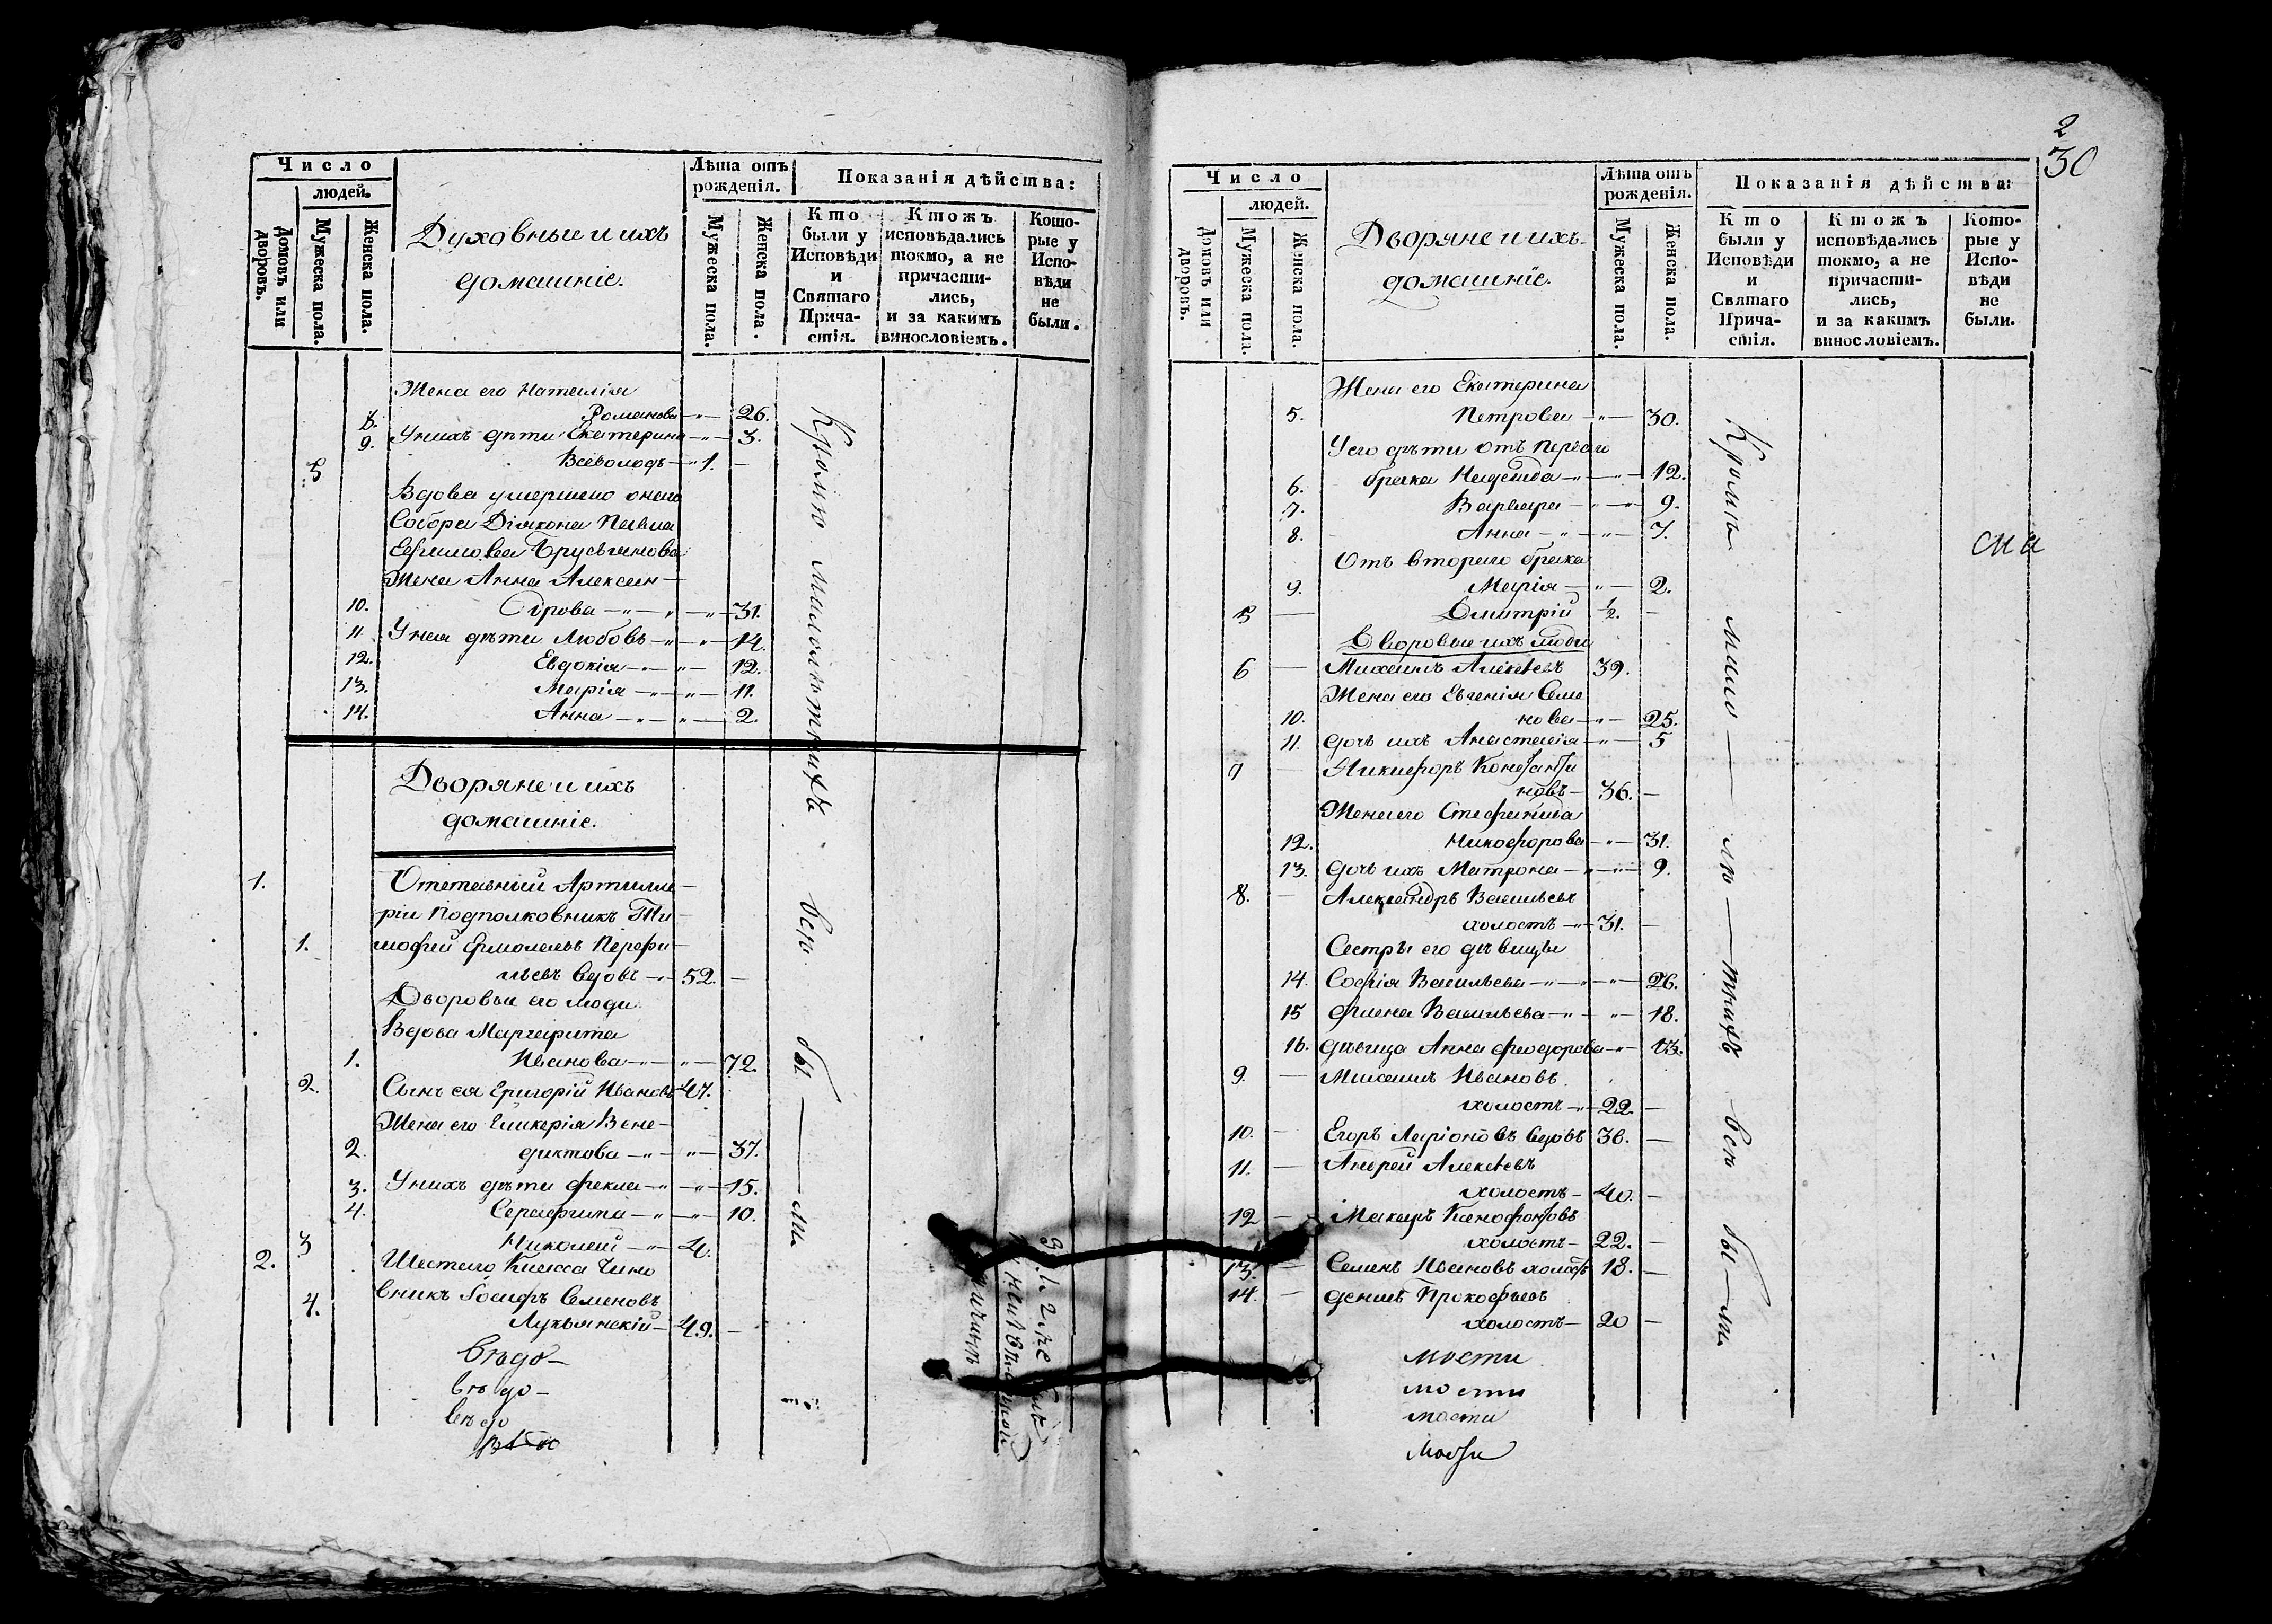 Число
людей.
Домовъ или дворовъ.
Мужеска пола.
Женска пола.
Духовные и ихъ
домашніе.
Лѣта отъ
рожденія.
Мужеска пола.
Женска пола.
Показанія дѣйства:
Кто
были у
Исповѣди
и
Святаго
Прича-
стія.
Ктожъ
исповѣдались
токмо, а не
причасти-
лись,
и за какимъ
винословіемъ.
Кото-
рые у
Испо-
вѣди
не
были.
Жена его Наталія
8. Романова —„— 26.
9. У нихъ дѣти Екатерина —„— 3.
5 Всеволодъ —„ 1. —
Вдова умершаго онаго
Собора Діякона Павла
Ефимова
Жена Анна Алексан-
10. дрова —„— „ —„— 31.
11. У нея дѣти Любовь —„— „— 14.
12. Евдокія —„— „— 12.
13. Марія —„— „— 11.
14. Анна —„— „— 2.
Дворяне и ихъ
домашніе.
1. Отставный Артилле-
ріи Подполковникъ Ти-
1. мофей Ермолаевъ Перфи-
льевъ вдовъ —„— 52. —
Дворовыи его люди
Вдова Маргарита
1. Иванова —„— „— 72.
2. Сынъ ея Григорій Ивановъ 47.
Жена его Гликерія Вене-
2. диктова —„— „— 37.
3. У нихъ дѣти Фекла —„— „— 15.
4. Серафима —„— „— 10.
3 Николай —„— 4.
2. Шестаго Класса Чино
4. вникъ Іосифъ Семеновъ
Лукьянскій — 49. —
вѣдо-
вѣдо-
вѣдо
Кромѣ малолѣтнихъ всѣ бы — ли
2
30
Число
людей.
Домовъ или дворовъ.
Мужеска пола.
Женска пола.
Дворяне и ихъ
домашніе.
Лѣта отъ
рожденія.
Мужеска пола.
Женска пола.
Показанія дѣйства:
Кто
были у
Исповѣди
и
Святаго
Прича-
стія.
Ктожъ
исповѣдались
токмо, а не
причасти-
лись,
и за какимъ
винословіемъ.
Кото-
рые у
Испо-
вѣди
не
были.
Жена его Екатерина
5. Петрова —„— 30.
У его дѣти отъ перваго
6. брака Надежда —„— „— 12.
7. Варвара — „— 9.
8. Анна —„— „— 7.
Отъ втораго брака
9. Марія — „— 2.
5 — Димитрій ½. —
Дворовые ихъ люди
6 — Михаилъ Алексѣевъ 39.
Жена его Евгенія Семе
10. нова —„— 25.
11. дочь ихъ Анастасія —„— 5
7 — Никифоръ Константи
новъ — 36. —
Жена его Стефанида
12. Никифорова —„— 31.
13. дочь ихъ Матрона —„— „— 9.
8. — Александръ Васильевъ
холостъ —„— 31. —
Сестры его дѣвицы
14. Софія Васильева —„— „— 26.
15 Фиена Васильева —„— „— 18.
16. дѣвица Анна Феодорова —„— 13.
9. — Михаилъ Ивановъ
холостъ —„— 22. —
10. — Егоръ Ларіоновъ вдовъ 38. —
11. — Андрей Алексѣевъ
холостъ — 40. —
12 — Макаръ Ксенофонтовъ
холостъ — 22. —
13. — Семенъ Ивановъ холостъ 18. —
14. — Денисъ Прокофьевъ
холостъ — 20 —
мости
мости
мости
мости
Кромѣ мало — лѣ — тнихъ всѣ бы — ли